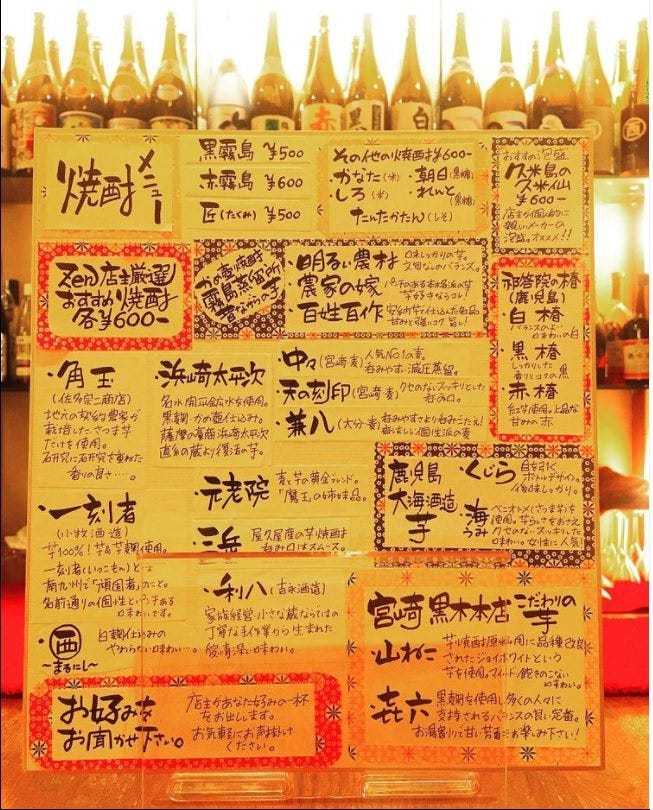 焼酎メニュー
黒霧島 ¥500
赤霧島 ¥600
匠(たくみ) ¥500
その他の焼酎¥600-
・かなた(米)
・朝日(黒糖)
・しろ(米)
・れんと(黒糖)
・たんたかたん(しそ)
おすすめ泡盛
久米島の
久米仙
¥600-
店主が個人的に
親しいメーカーの
泡盛。オススメ!!
Zen店主厳選
おすすめ焼酎
各¥600-
かめ壺焼酎
霧島蒸留所
昔ながらの芋
・明るい農村
・農家の嫁
芋好きならコレ!
・百姓百作
甘みと強いコク 旨し!
祁答院の椿
(鹿児島)
・白椿
バランスのよい
味わいの白
・黒椿
しっかりした
香りとコクの黒
・赤椿
紅芋使用。上品な
甘みの赤
・角玉
(佐多宗二商店)
地元の契約農家が
栽培したさつま芋
だけを使用。
研究に研究を重ねた
香りの良さ…。
・浜崎太平次
黒麹・かめ壺仕込み。
薩摩の豪商 浜崎太平次
直系の蔵より復活の芋。
・中々(宮崎 麦)
人気No.1の麦。
呑みやすい減圧蒸留。
・天の刻印(宮崎 麦)
クセのないスッキリとした
呑み口。
・兼八(大分 麦)
呑みやすさより呑みごたえ!
香ばしい個性派の麦
・元老院
麦と芋の黄金ブレンド。
「魔王」の姉妹品。
・三岳
屋久島産の芋焼酎
呑み口はスムース。
鹿児島
大海酒造
芋
・くじら
ボトルデザイン。
後味しっかり。
・海
うみ
ベニオトメ(さつま芋)を
使用。芋らしさをおさえ
クセのないスッキリした
味わい。女性に人気!
・一刻者
(小牧醸造)
芋100%!芋&芋麹使用。
一刻者(いっこもん)とは
南九州で「頑固者」のこと。
名前通りの個性とパンチある
味わいです。
・利八(吉永酒造)
家族経営の小さな蔵ならではの
丁寧な手作業から生まれた
愛情深い味わい。
・㊄西
〜まるにし〜
白麹仕込みの
やわらかい味わい…。
宮崎 黒木本店 こだわりの芋
・山ねこ
芋焼酎原料用に品種改良
されたジョイホワイトという
芋を使用。マイルドで飽きのこない
味わい。
・㐂六
黒麹を使用し多くの人々に
支持されるバランスの良い定番。
お湯割りで甘い芳香をお楽しみ下さい!
お好みを
お聞かせ下さい。
店主があなた好みの一杯
をお出しします。
お気軽にお声掛け
ください。